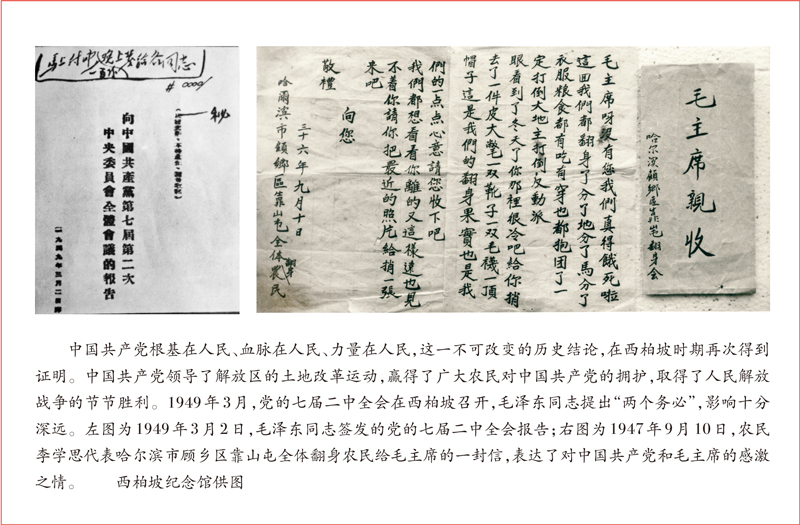 馬上付印晚上發給各同志
向中國共產黨第七屆第二次
中央委員會全體會議的報告
一九四九年三月二日
毛主席親收
哈尔濱顧鄉區靠山屯翻身会
毛主席呀沒有您我們真得餓死啦
這回我們都翻身了分了地分了馬分了
衣服粮食都有吃有穿也都抱团了一
定打倒大地主打倒反动派
眼看到了冬天了你那裡很冷吧給你捎
去了一件皮大氅一双靴子一双毛襪一頂
帽子這是我們的翻身果實也是我
們的一点点心意請您收下吧
我們都想看看你離的又這樣遠也見
不着你請你把最近的照片給捎一張
来吧
向您
敬禮
三十六年九月十日
哈爾濱市顧鄉區靠山屯全体翻身農民
中国共产党根基在人民、血脉在人民、力量在人民,这一不可改变的历史结论,在西柏坡时期再次得到
证明。中国共产党领导了解放区的土地改革运动,赢得了广大农民对中国共产党的拥护,取得了人民解放
战争的节节胜利。1949年3月,党的七届二中全会在西柏坡召开,毛泽东同志提出“两个务必”,影响十分
深远。左图为1949年3月2日,毛泽东同志签发的党的七届二中全会报告;右图为1947年9月10日,农民
李学思代表哈尔滨市顾乡区靠山屯全体翻身农民给毛主席的一封信,表达了对中国共产党和毛主席的感激
之情。 西柏坡纪念馆供图